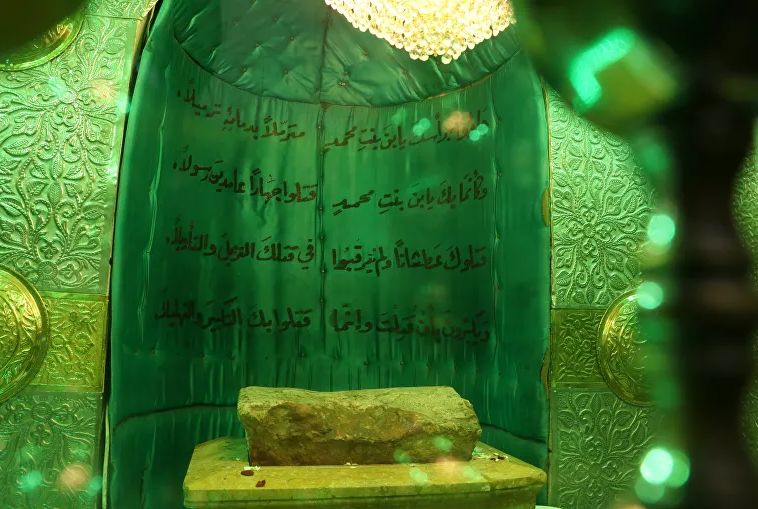 جاؤوا برأسك يابن بنت محمدٍ متزملاً بدمائهِ تزميلاً
وكأنما بك يابن بنتِ محمدٍ قتلوا جهاراً عامدين رسولاً
قتلوكَ عطشاناً ولم يرقبوا في قتلكَ التنزيلَ والتأويلاً
ويكبّرونَ بأن قُتِلتَ وإنّما قتلوا بكَ التكبيرَ والتهليلاً